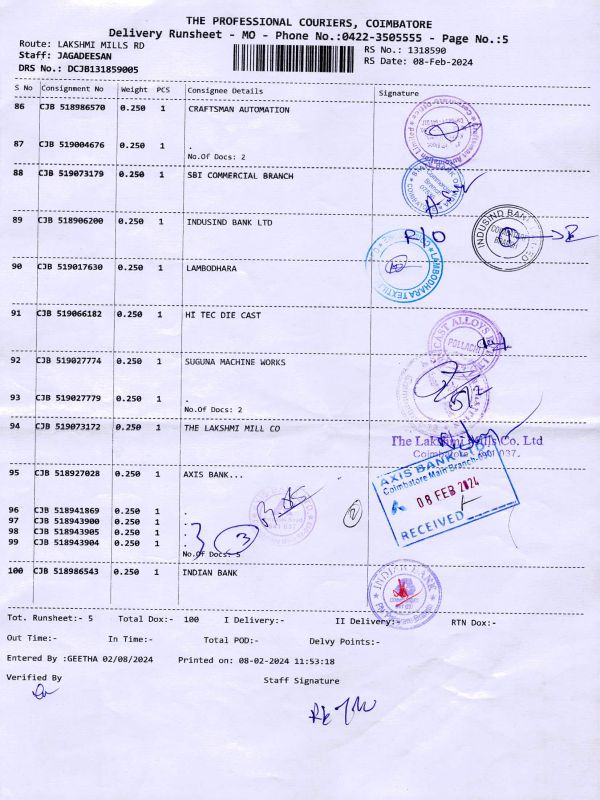 THE PROFESSIONAL COURIERS, COIMBATORE
Delivery Runsheet - MO - Phone No.:0422-3505555 - Page No.:5
Route: LAKSHMI MILLS RD
RS No.: 1318590
Staff: JAGADEESAN
RS Date: 08-Feb-2024
DRS No.: DCJB131859005
S No Consignment No Weight PCS Consignee Details Signature
86 CJB 518986570 0.250 1 CRAFTSMAN AUTOMATION
87 CJB 519004676 0.250 1 .
No.Of Docs: 2
88 CJB 519073179 0.250 1 SBI COMMERCIAL BRANCH
89 CJB 518906200 0.250 1 INDUSIND BANK LTD
INDUSIND BANK
90 CJB 519017630 0.250 1 LAMBODHARA
LAMBODHARA TEXTILE
91 CJB 519066182 0.250 1 HI TEC DIE CAST
POLLACHI
92 CJB 519027774 0.250 1 SUGUNA MACHINE WORKS
93 CJB 519027779 0.250 1 .
No.Of Docs: 2
94 CJB 519073172 0.250 1 THE LAKSHMI MILL CO
The Lakshmi Mills Co. Ltd
95 CJB 518927028 0.250 1 AXIS BANK...
AXIS BANK
Coimbatore Main Branch
08 FEB 2024
RECEIVED
96 CJB 518941869 0.250 1 .
97 CJB 518943900 0.250 1 .
98 CJB 518943905 0.250 1 .
99 CJB 518943904 0.250 1 .
3
2
No.Of Docs: 5
100 CJB 518986543 0.250 1 INDIAN BANK
INDIAN BANK
Tot. Runsheet:- 5 Total Dox:- 100 I Delivery:- II Delivery:- RTN Dox:-
Out Time:- In Time:- Total POD:- Delvy Points:-
Entered By :GEETHA 02/08/2024 Printed on: 08-02-2024 11:53:18
Verified By Staff Signature